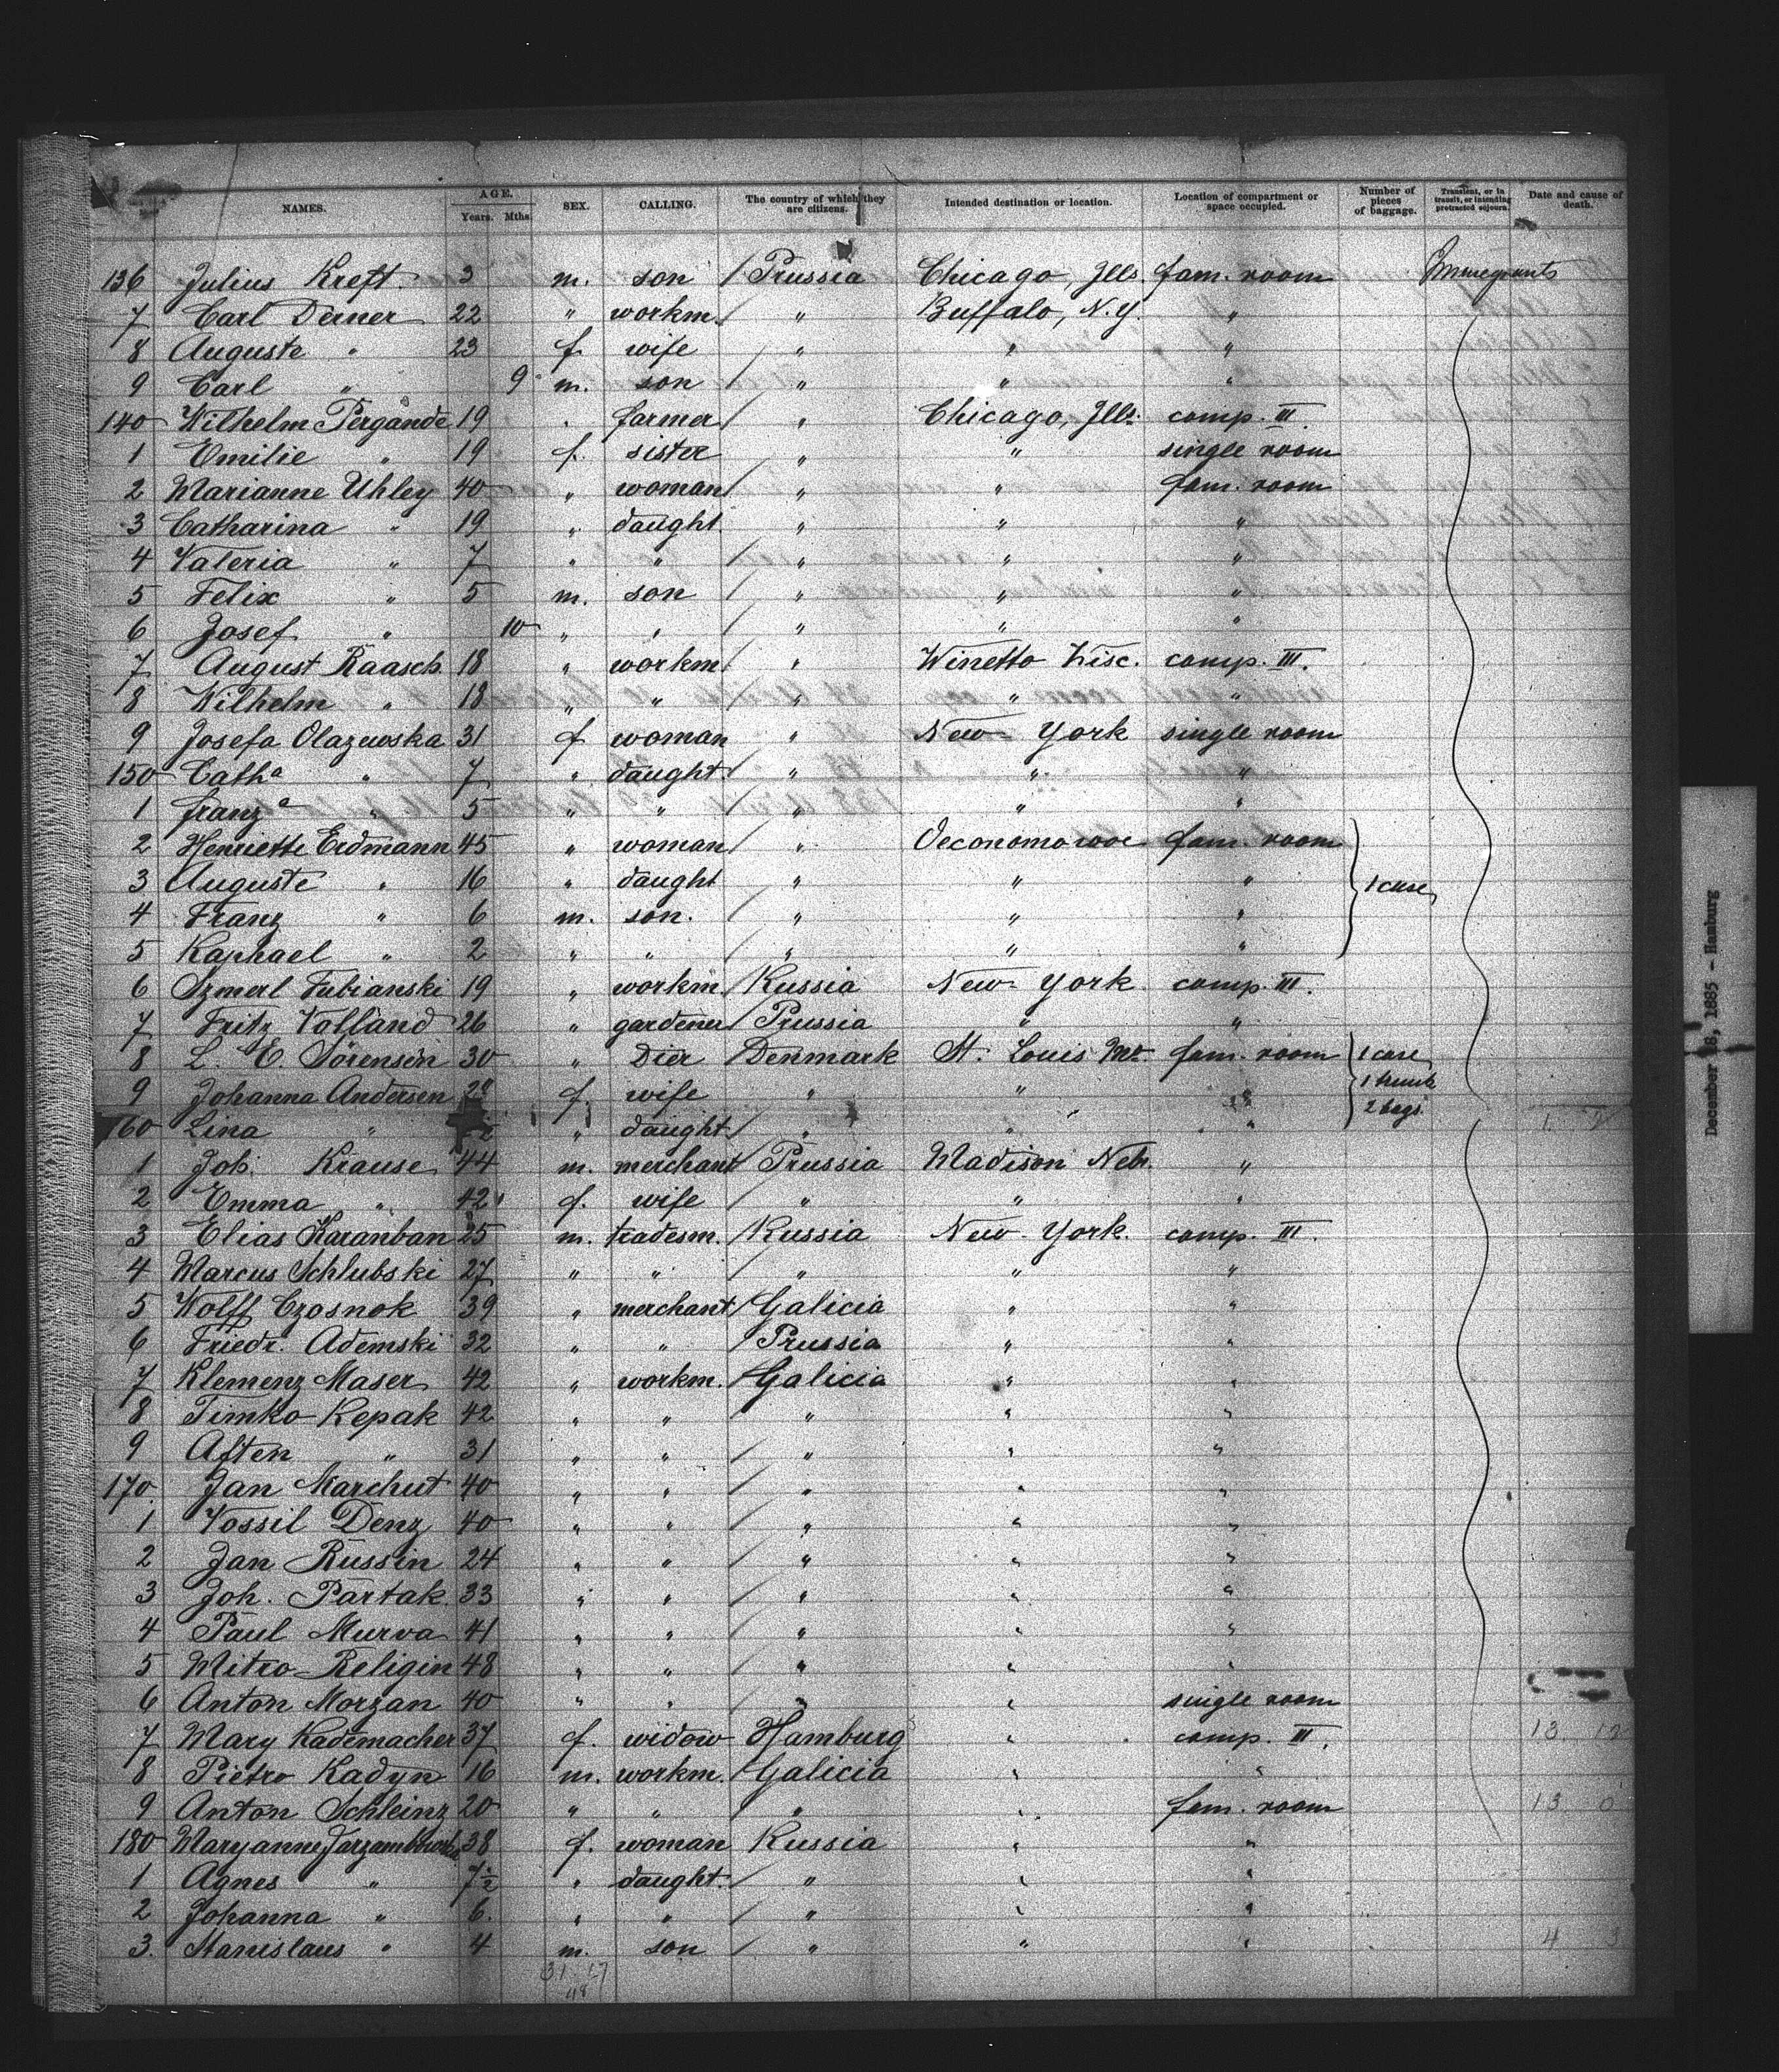 NAMES. AGE. Years. Mths. SEX. CALLING. The country of which they are citizens. Intended destination or location. Location of compartment or space occupied. Number of pieces of baggage. Transient, or in transit, or intending protracted sojourn. Date and cause of death.
136 Julius Kreft 3 m. son / Prussia Chicago, Ills. fam. room Immegrants
7 Carl Derner 22 " workm. / " Buffalo, N.Y. "
8 Auguste " 23 f. wife / " " "
9 Carl " 9 m. son / " " "
140 Wilhelm Pergande 19 " farmer / " Chicago, Ills. comp. III.
1 Emilie " 19 f. sister / " " single room
2 Marianne Uhley 40 " woman / " " fam. room
3 Catharina " 19 " daught. / " " "
4 Valeria " 7 " " / " " "
5 Felix " 5 m. son / " " "
6 Josef " 10 " " / " " "
7 August Raasch 18 " workm. / " Winetto Wisc. comp. III.
8 Wilhelm " 18 " " / " " "
9 Josefa Olazewska 31 f. woman " New York single room
150 Catha " 7 " daught. / " " "
1 Franza " 5 " " / " " "
2 Henriette Erdmann 45 " woman / " Oeconomowoc fam. room
3 Auguste " 16 " daught " " " 1 case
4 Franz " 6 m. son. / " " "
5 Raphael " 2 " " / " " "
6 Szmerl Fubianski 19 " workm. / Russia New York comp. III.
7 Fritz Volland 26 " gardener / Prussia " "
8 L. E. Sörensen 30 " Dier / Denmark St. Louis Mo. fam. room 1 case
9 Johanna Andersen 28 f. wife " " " 1 trunk
160 Lina " " daught. / " " " 2 bags.
1 Joh. Krause 44 m. merchant / Prussia Madison Nebr. "
2 Emma " 42 f. wife / " " "
3 Elias Karanban 25 m. tradesm. / Russia New York. comp. III.
4 Marcus Schlubski 27 " " / " " "
5 Wolff Czosnok 39 " merchant / Galicia " "
6 Friedr. Ademski 32 " " / Prussia " "
7 Klemenz Maser 42 " workm. / Galicia " "
8 Timko Kepak 42 " " / " " "
9 Aften " 31 " " / " " "
170. Jan Marchut 40 " " / " " "
1 Vossil Denz 40 " " / " " "
2 Jan Russin 24 " " / " " "
3 Joh. Partak 33 " " / " " "
4 Paul Murva 41 " " / " " "
5 Mitro Religin 48 " " / " " "
6 Anton Morzan 40 " " / " " single room
7 Mary Rademacher 37 f. widow Hamburg " comp. III. 13 12
8 Pietro Kadyn 16 m. workm. / Galicia " "
9 Anton Schleinz 20 " " " " fam. room 13 0
180 Maryanne 38 f. woman Russia " "
1 Agnes " 7½ " daught. / " " "
2 Johanna " 6. " " / " " "
3. Stanislaus " 4 m. son / " " " 4 3
31 17
48
December 18, 1885 - Hamburg